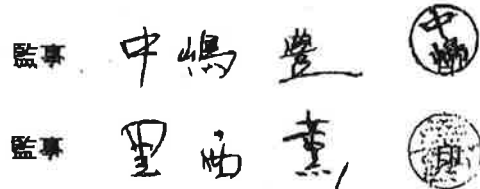 監事 中嶋 豊 中嶋
監事 里 薫 印